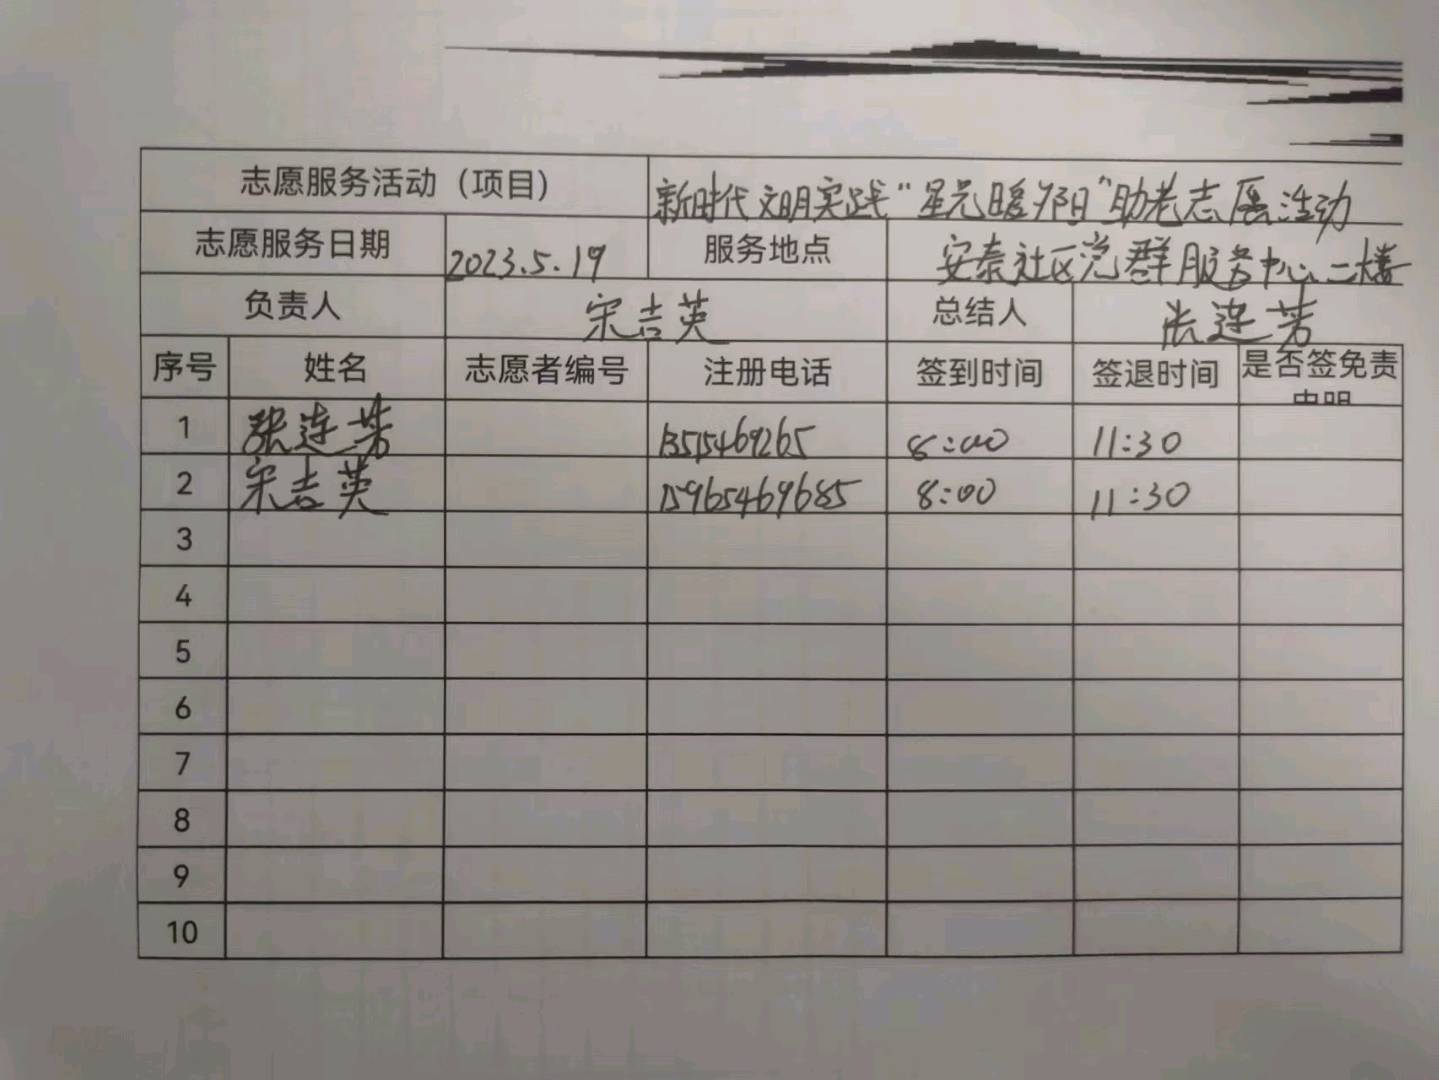 志愿服务活动（项目） 新时代文明实践“星光暖夕阳”助老志愿活动
志愿服务日期 2023.5.19 服务地点 安泰社区党群服务中心二楼
负责人 宋吉英 总结人 张连芳
序号 姓名 志愿者编号 注册电话 签到时间 签退时间 是否签免责
申明
1 张连芳 13515469265 8:00 11:30
2 宋吉英 15965469685 8:00 11:30
3
4
5
6
7
8
9
10